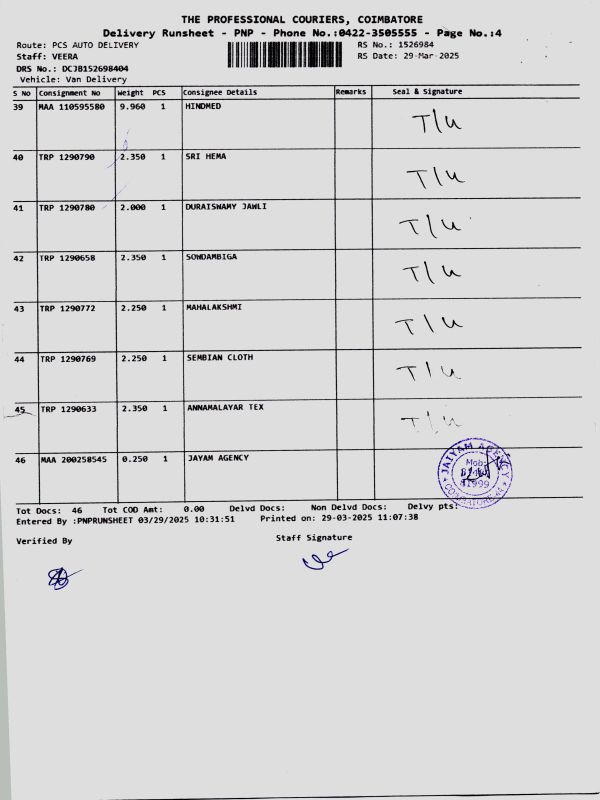 THE PROFESSIONAL COURIERS, COIMBATORE
Delivery Runsheet - PNP - Phone No.:0422-3505555 - Page No.:4
Route: PCS AUTO DELIVERY RS No.: 1526984
Staff: VEERA RS Date: 29-Mar-2025
DRS No.: DCJB152698404
Vehicle: Van Delivery
S No Consignment No Weight PCS Consignee Details Remarks Seal & Signature
39 MAA 110595580 9.960 1 HINDMED T/U
40 TRP 1290790 2.350 1 SRI HEMA T/U
41 TRP 1290780 2.000 1 DURAISWAMY JAWLI T/U
42 TRP 1290658 2.350 1 SOWDAMBIGA T/U
43 TRP 1290772 2.250 1 MAHALAKSHMI T/U
44 TRP 1290769 2.250 1 SEMBIAN CLOTH T/U
45 TRP 1290633 2.350 1 ANNAMALAYAR TEX T/U
46 MAA 200258545 0.250 1 JAYAM AGENCY
JAIYAM AGENCY
Mob:
Tot Docs: 46 Tot COD Amt: 0.00 Delvd Docs: Non Delvd Docs: Delvy pts:
Entered By :PNPRUNSHEET 03/29/2025 10:31:51 Printed on: 29-03-2025 11:07:38
Verified By Staff Signature